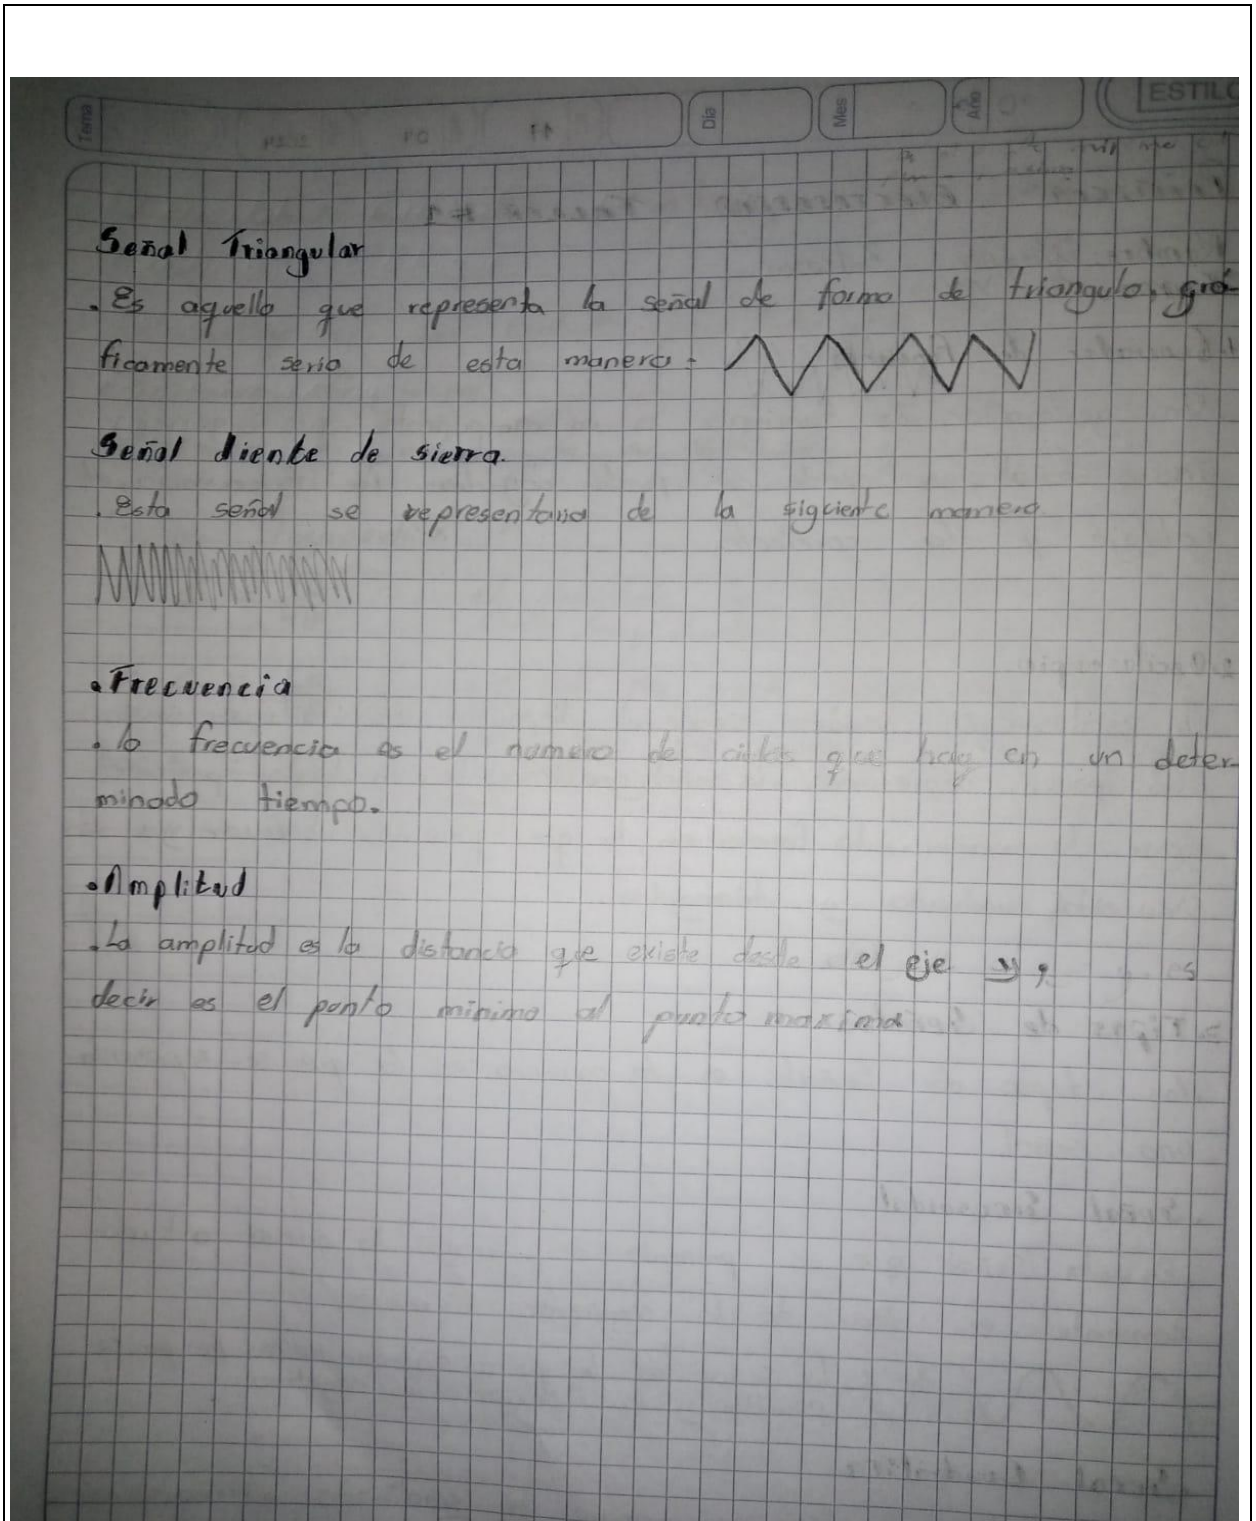 Tema
Dia
Mes
Año
ESTILO
Señal Triangular
. Es aquello que representa la señal de forma de triangulo, grá-
ficamente seria de esta manera -
Señal diente de sierra.
. Esta señal se representaria de la siguiente manera
. Frecuencia
. la frecuencia es el numero de ciclos que hay en un deter-
minado tiempo.
. Amplitud
. La amplitud es la distancia que existe desde el eje y, es
decir es el punto minimo al punto maximo